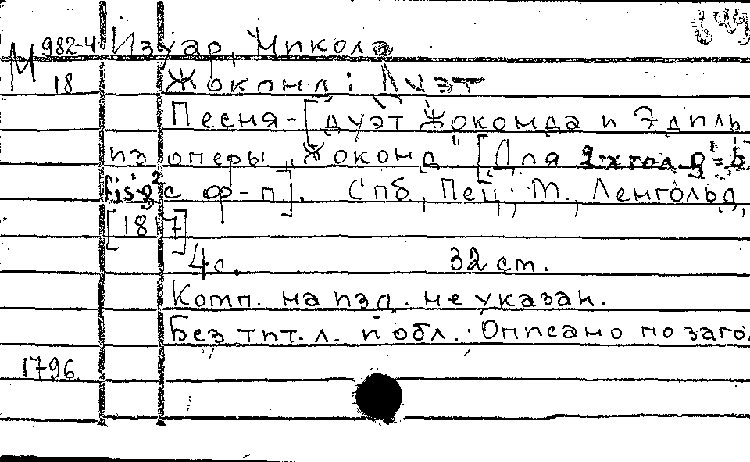 М 982-4 Изуар, Никола
18 Жоконд: Дуэт
Песня-[дуэт Жоконда и Эдиль
из оперы „Жоконд" [Для 2-х гол.
с ф-п]. Спб, Печ. М. Ленгольд,
[1817]
4 с. 32 см.
Комп. на изд. не указан.
Без тит. л. и обл. Описано по заго
1796